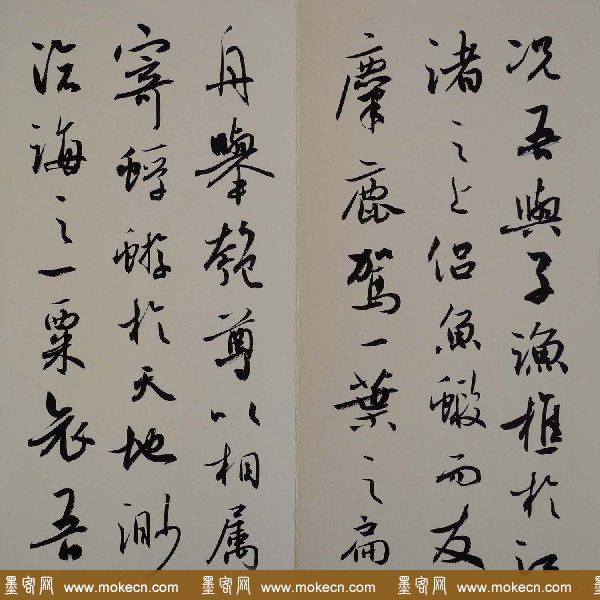 况吾與子漁樵於江
渚之上侣魚蝦而友
麋鹿駕一葉之扁
舟舉匏尊以相属
寄蜉蝣於天地渺
滄海之一粟哀吾
墨客网 www.mokecn.com 墨客网 www.mokecn.com 墨客网 www.mokecn.com